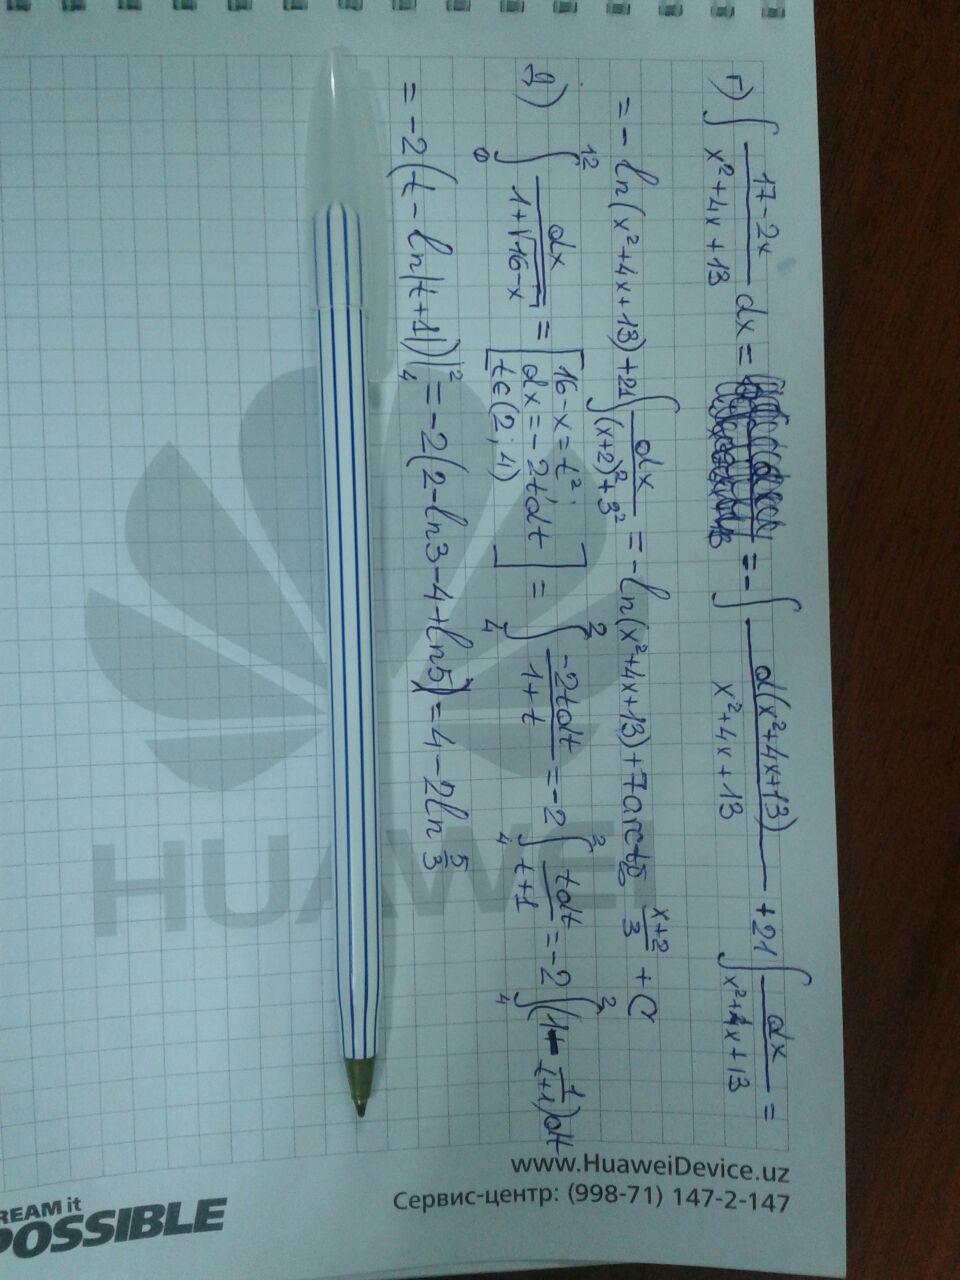 г) ∫ (17-2x)/(x²+4x+13) dx = = -∫ d(x²+4x+13)/(x²+4x+13) + 21 ∫ dx/(x²+4x+13) =
= - ln(x²+4x+13) + 21 ∫ dx/((x+2)²+3²) = -ln(x²+4x+13) + 7arctg (x+2)/3 + C
д) ∫₀¹² dx/(1+√16-x) = [16-x=t²; dx=-2tdt t∈(2;4)] = ∫₄² -2tdt/(1+t) = -2 ∫₄² tdt/(t+1) = -2 ∫₄² (1- 1/(t+1))dt
= -2(t-ln|t+1|)|₄² = -2(2-ln3-4+ln5) = 4-2ln 5/3
HUAWEI
www.HuaweiDevice.uz
Сервис-центр: (998-71) 147-2-147
REAM it
POSSIBLE